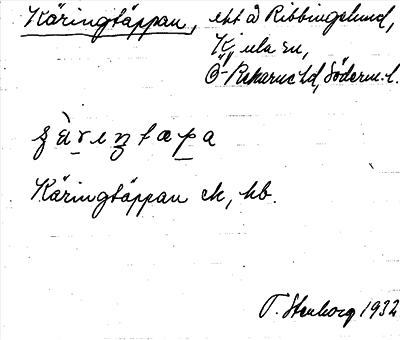 Käringtäppan, ett å Ribbingelund,
Kjula sn,
Ö-Rekarne hd, Söderm. l.
Käringtäppan ek, hb.
T. Stenborg 1932